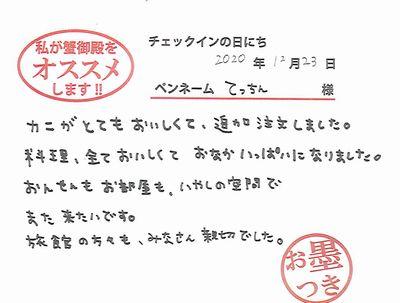 私が蟹御殿を
オススメ
します!!
チェックインの日にち
2020 年 12 月 23 日
ペンネーム てっちん 様
カニがとてもおいしくて、追加注文しました。
料理、全ておいしくて おなかいっぱいになりました。
おんせんもお部屋も、いやしの空間で
また来たいです。
旅館の方々も、みなさん親切でした。
お墨
つき